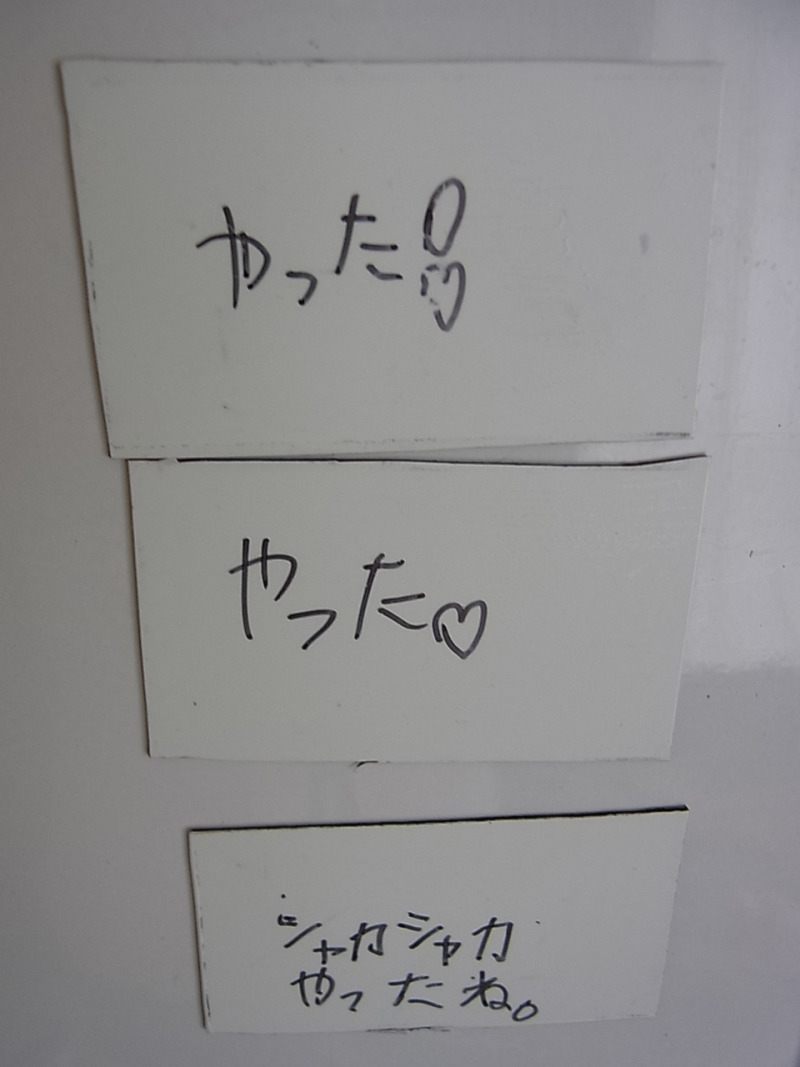 やった!♡
やった♡
シャカシャカ
やったね。